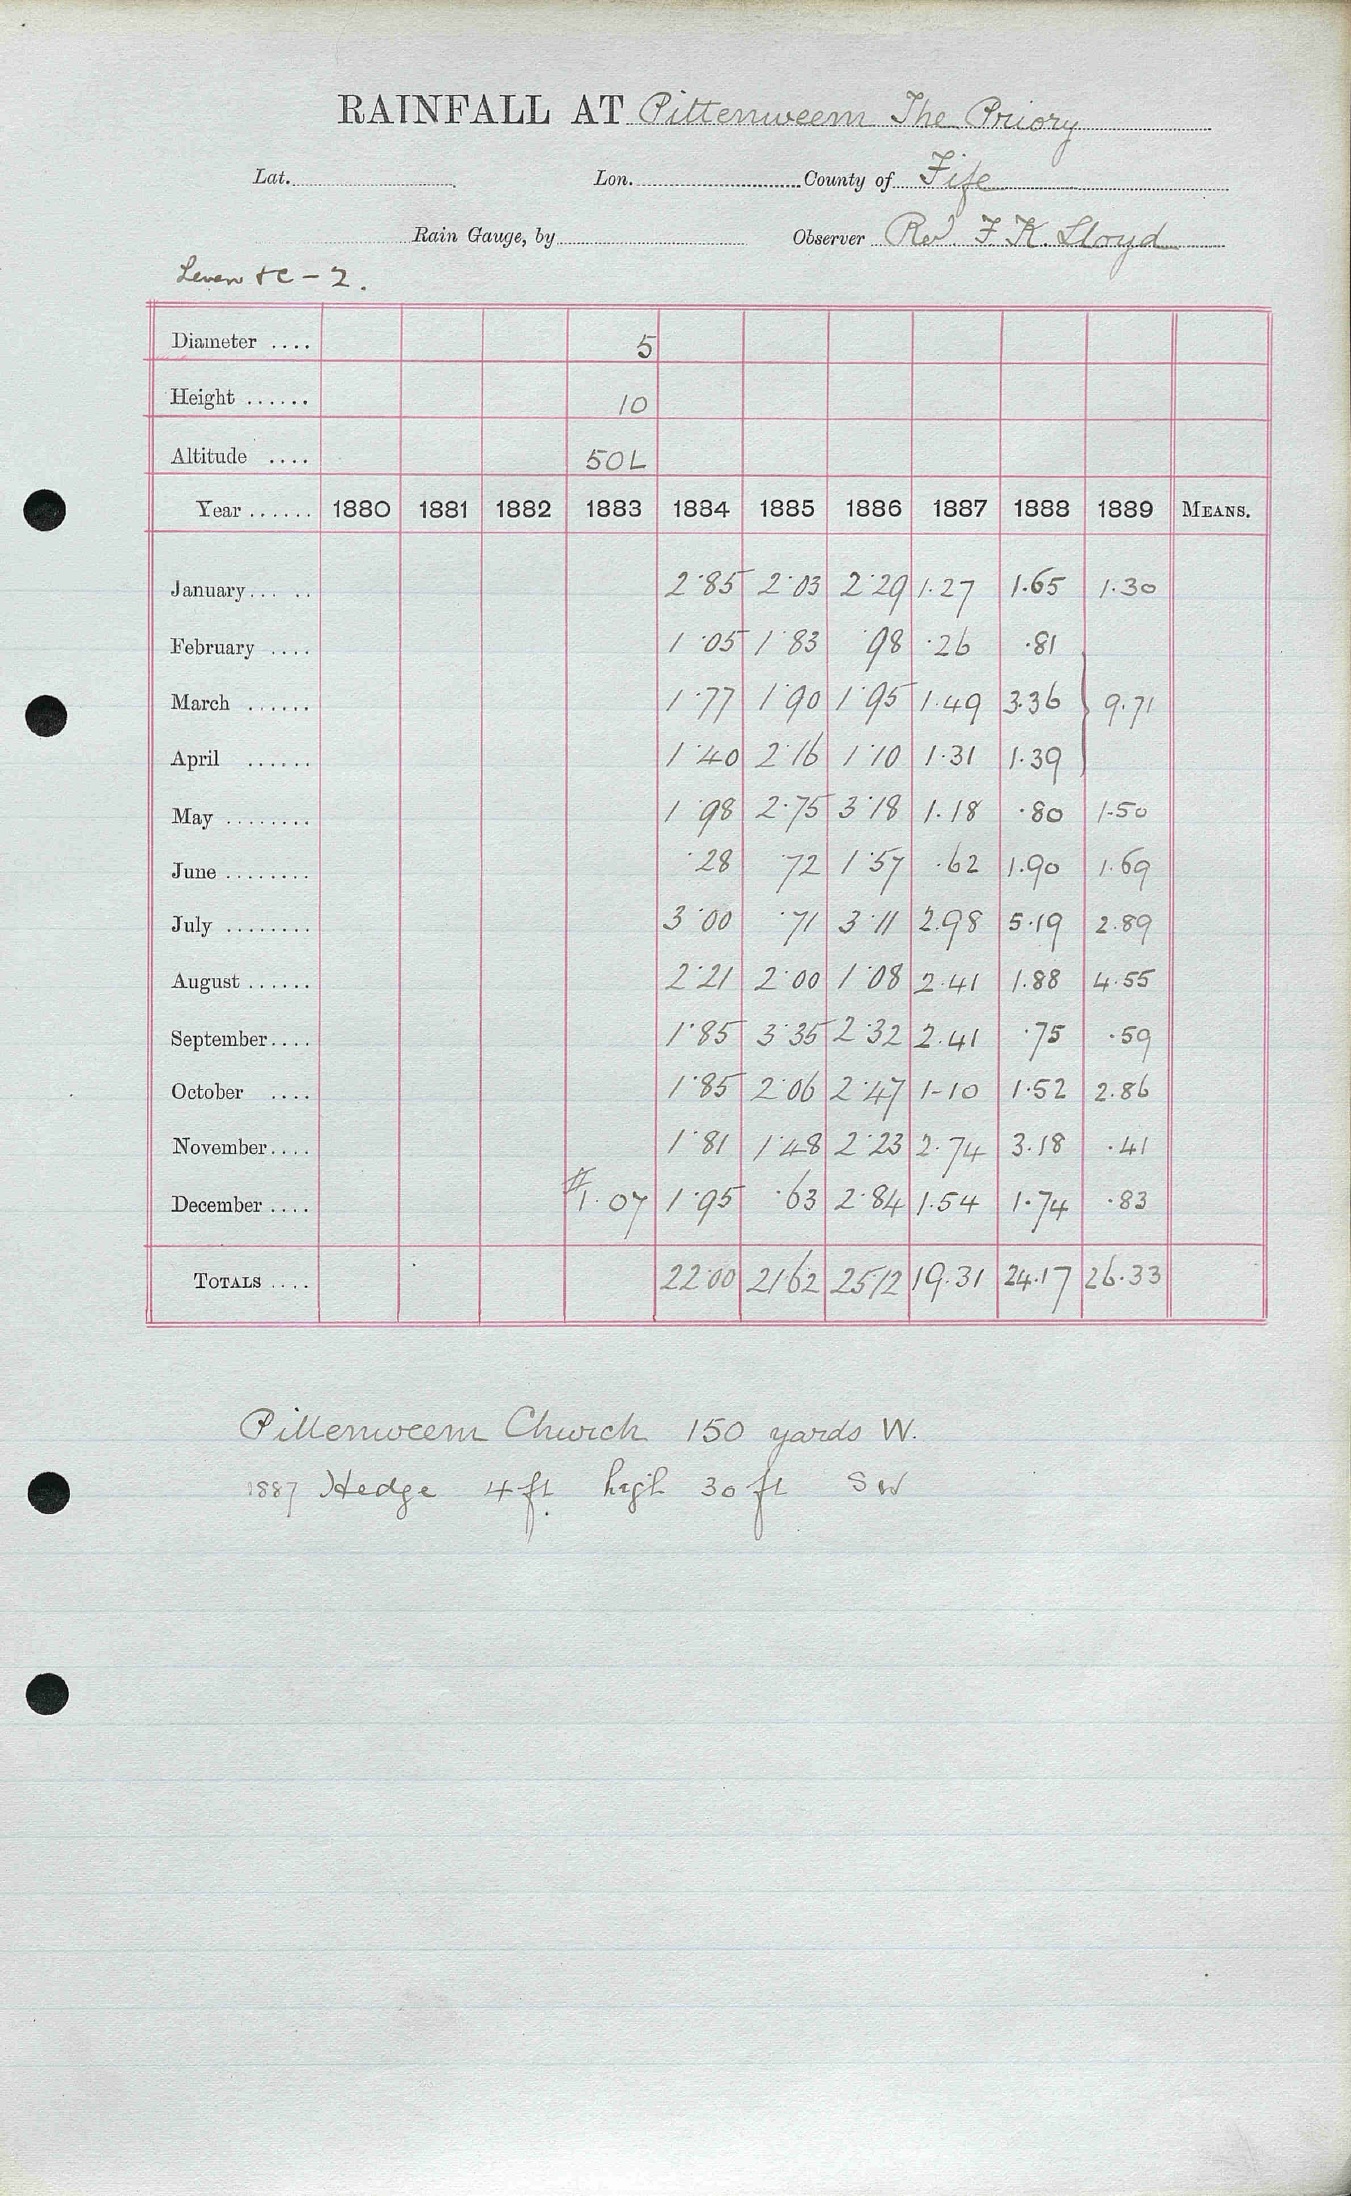 RAINFALL AT Pittenweem The Priory
Lat. Lon. County of Fife
Rain Gauge, by Observer Rev F K. Lloyd
Leven &c - 2.
Diameter .... 5
Height ...... 10
Altitude .... 50L
Year ...... 1880 1881 1882 1883 1884 1885 1886 1887 1888 1889 MEANS.
January... .. 2.85 2.03 2.29 1.27 1.65 1.30
February .... 1.05 1.83 .98 .26 .81
March ...... 1.77 1.90 1.95 1.49 3.36 } 9.71
April ...... 1.40 2.16 1.10 1.31 1.39
May ........ 1.98 2.75 3.18 1.18 .80 1.50
June ........ .28 .72 1.57 .62 1.90 1.69
July ........ 3.00 .71 3.11 2.98 5.19 2.89
August ...... 2.21 2.00 1.08 2.41 1.88 4.55
September.... 1.85 3.35 2.32 2.41 .75 .59
October .... 1.85 2.06 2.47 1-10 1.52 2.86
November.... 1.81 1.48 2.23 2.74 3.18 .41
December .... #1.07 1.95 .63 2.84 1.54 1.74 .83
TOTALS .... 22.00 21.62 25.12 19.31 24.17 26.33
Pittenweem Church 150 yards W.
1887 Hedge 4 ft. high 30 ft SW